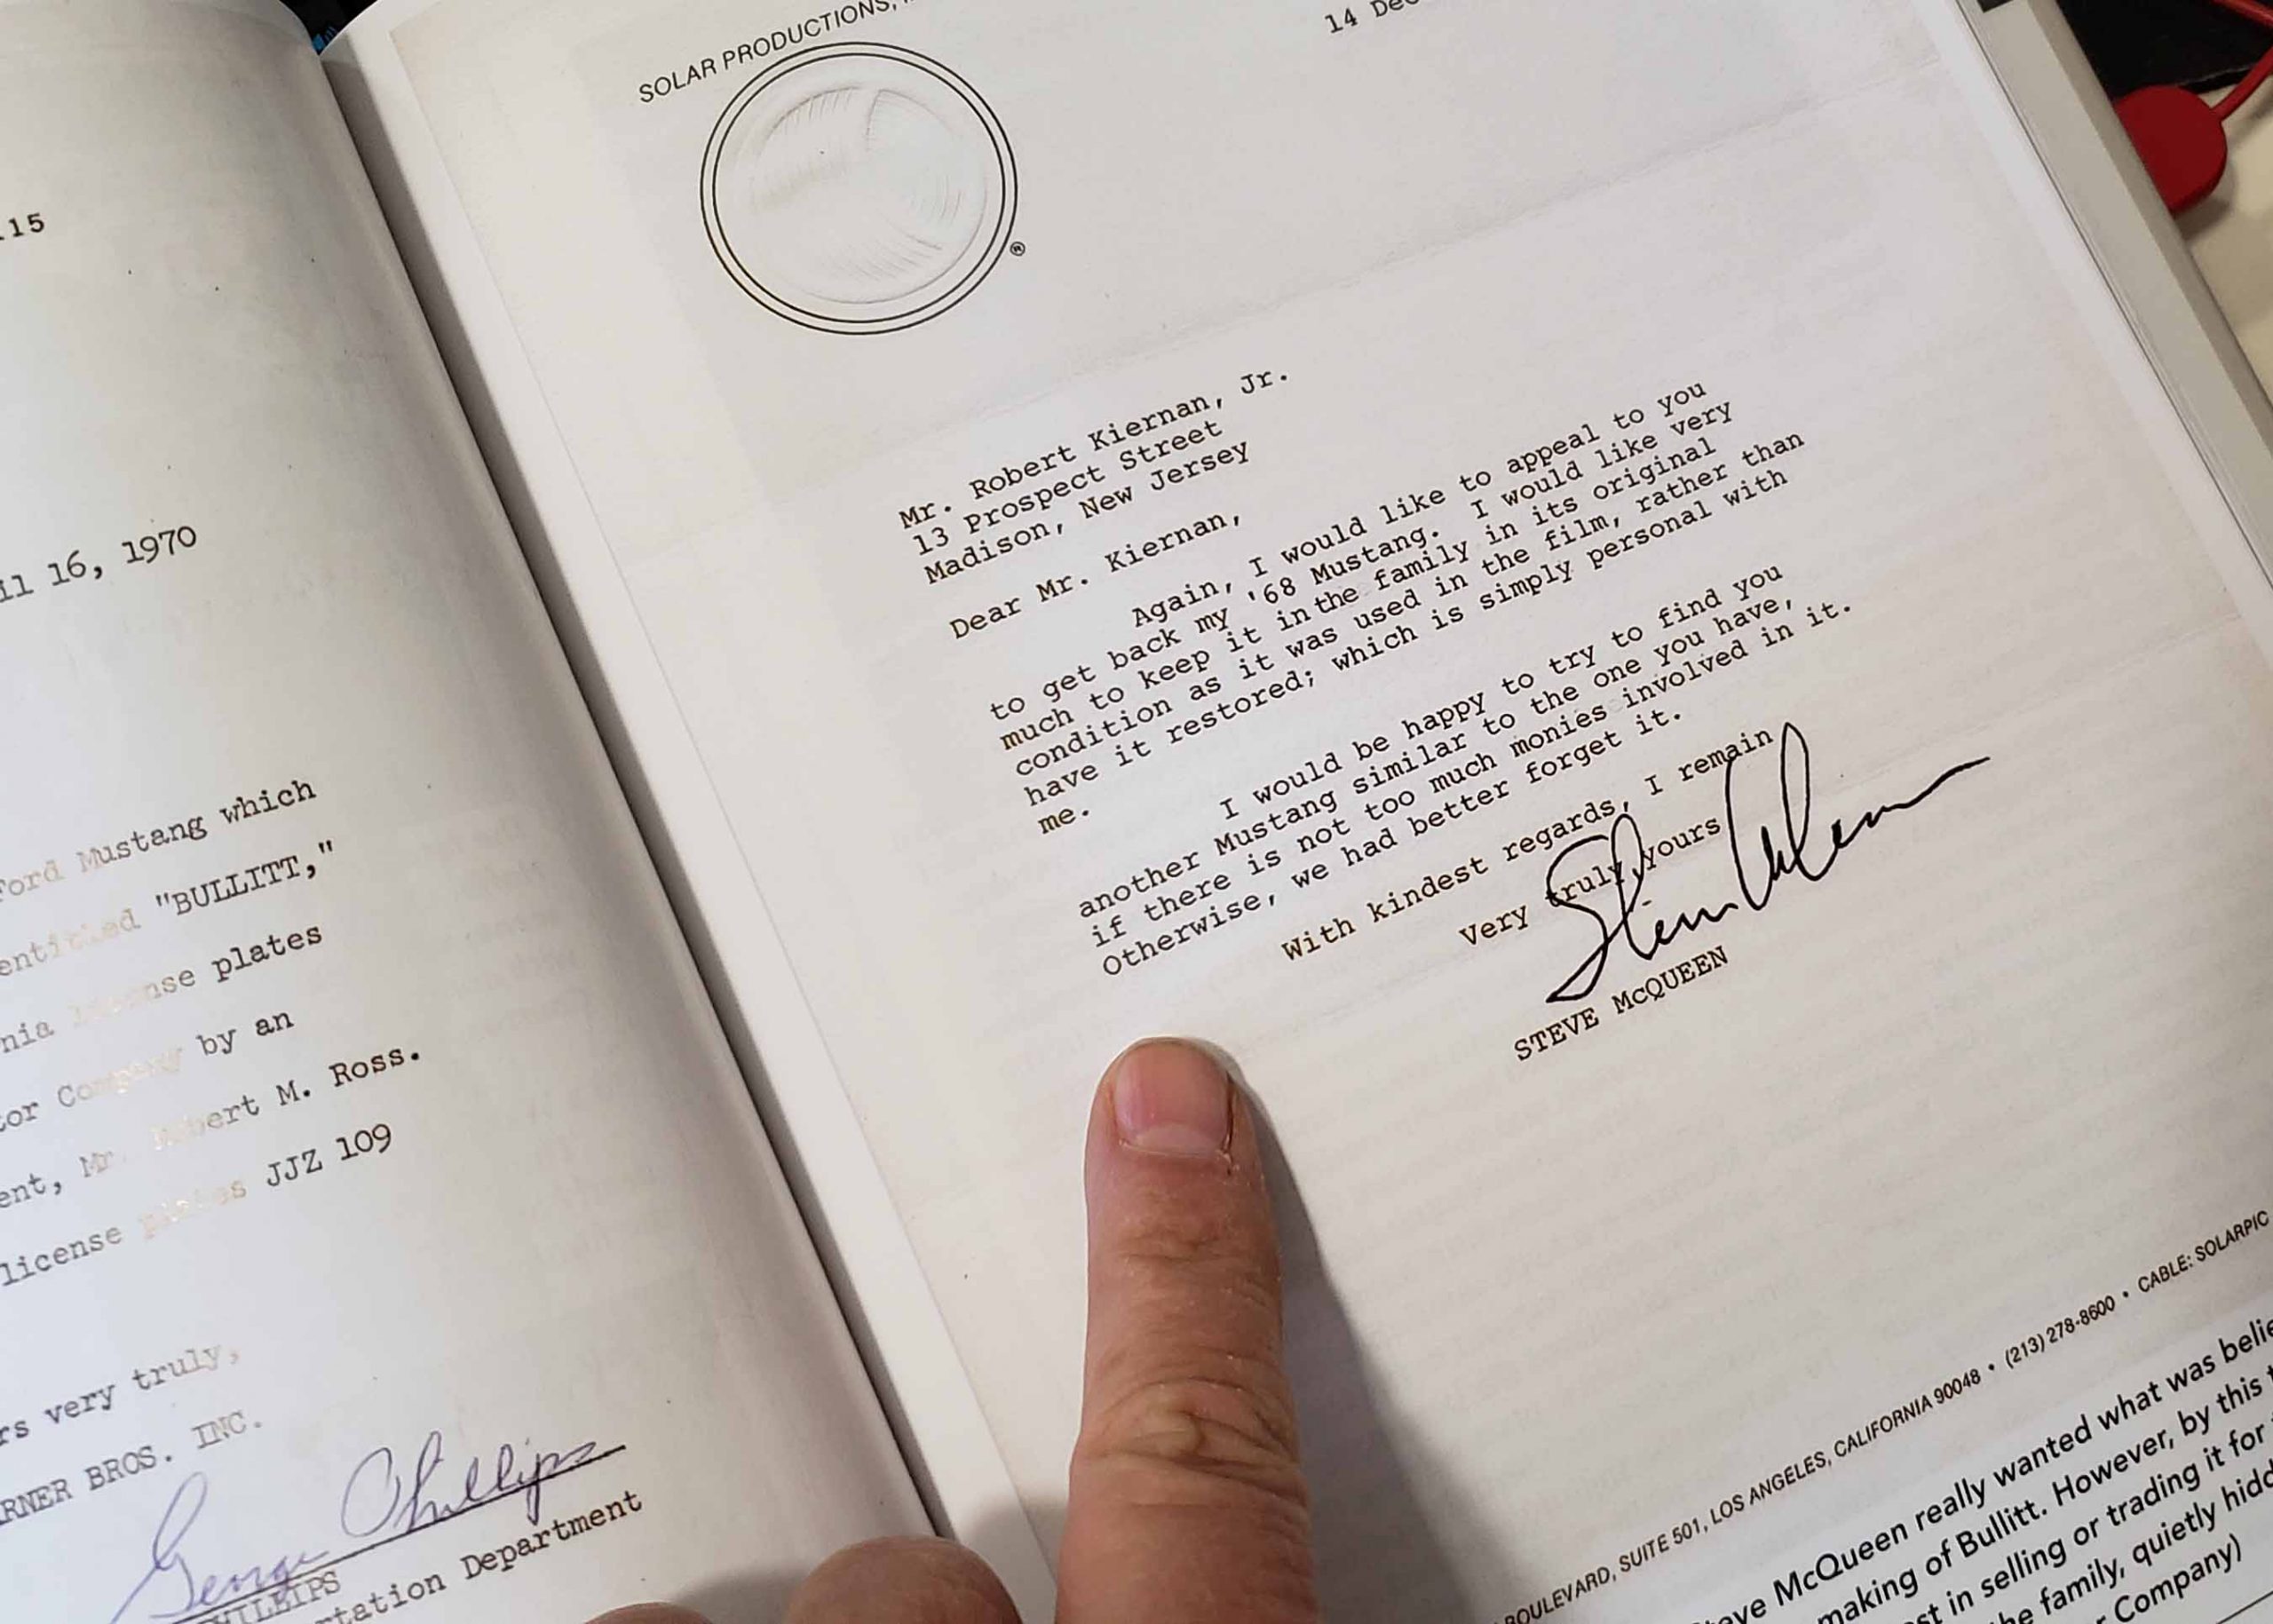 15
16, 1970
Ford Mustang which
entitled "BULLITT,"
license plates
by an
Robert M. Ross.
license plates JJZ 109
very truly,
BROS. INC.
George Phillips
PHILLIPS
Department
SOLAR PRODUCTIONS,
14
®
Mr. Robert Kiernan, Jr.
13 Prospect Street
Madison, New Jersey
Dear Mr. Kiernan,
Again, I would like to appeal to you
to get back my '68 Mustang. I would like very
much to keep it in the family in its original
condition as it was used in the film, rather than
have it restored; which is simply personal with
me.
I would be happy to try to find you
another Mustang similar to the one you have,
if there is not too much monies involved in it.
Otherwise, we had better forget it.
With kindest regards, I remain
Very truly yours
Steve McQueen
STEVE McQUEEN
BOULEVARD, SUITE 501, LOS ANGELES, CALIFORNIA 90048 • (213) 278-8600 • CABLE: SOLARPIC
McQueen really wanted what was
making of Bullitt. However, by this
in selling or trading it for
family, quietly
Company)